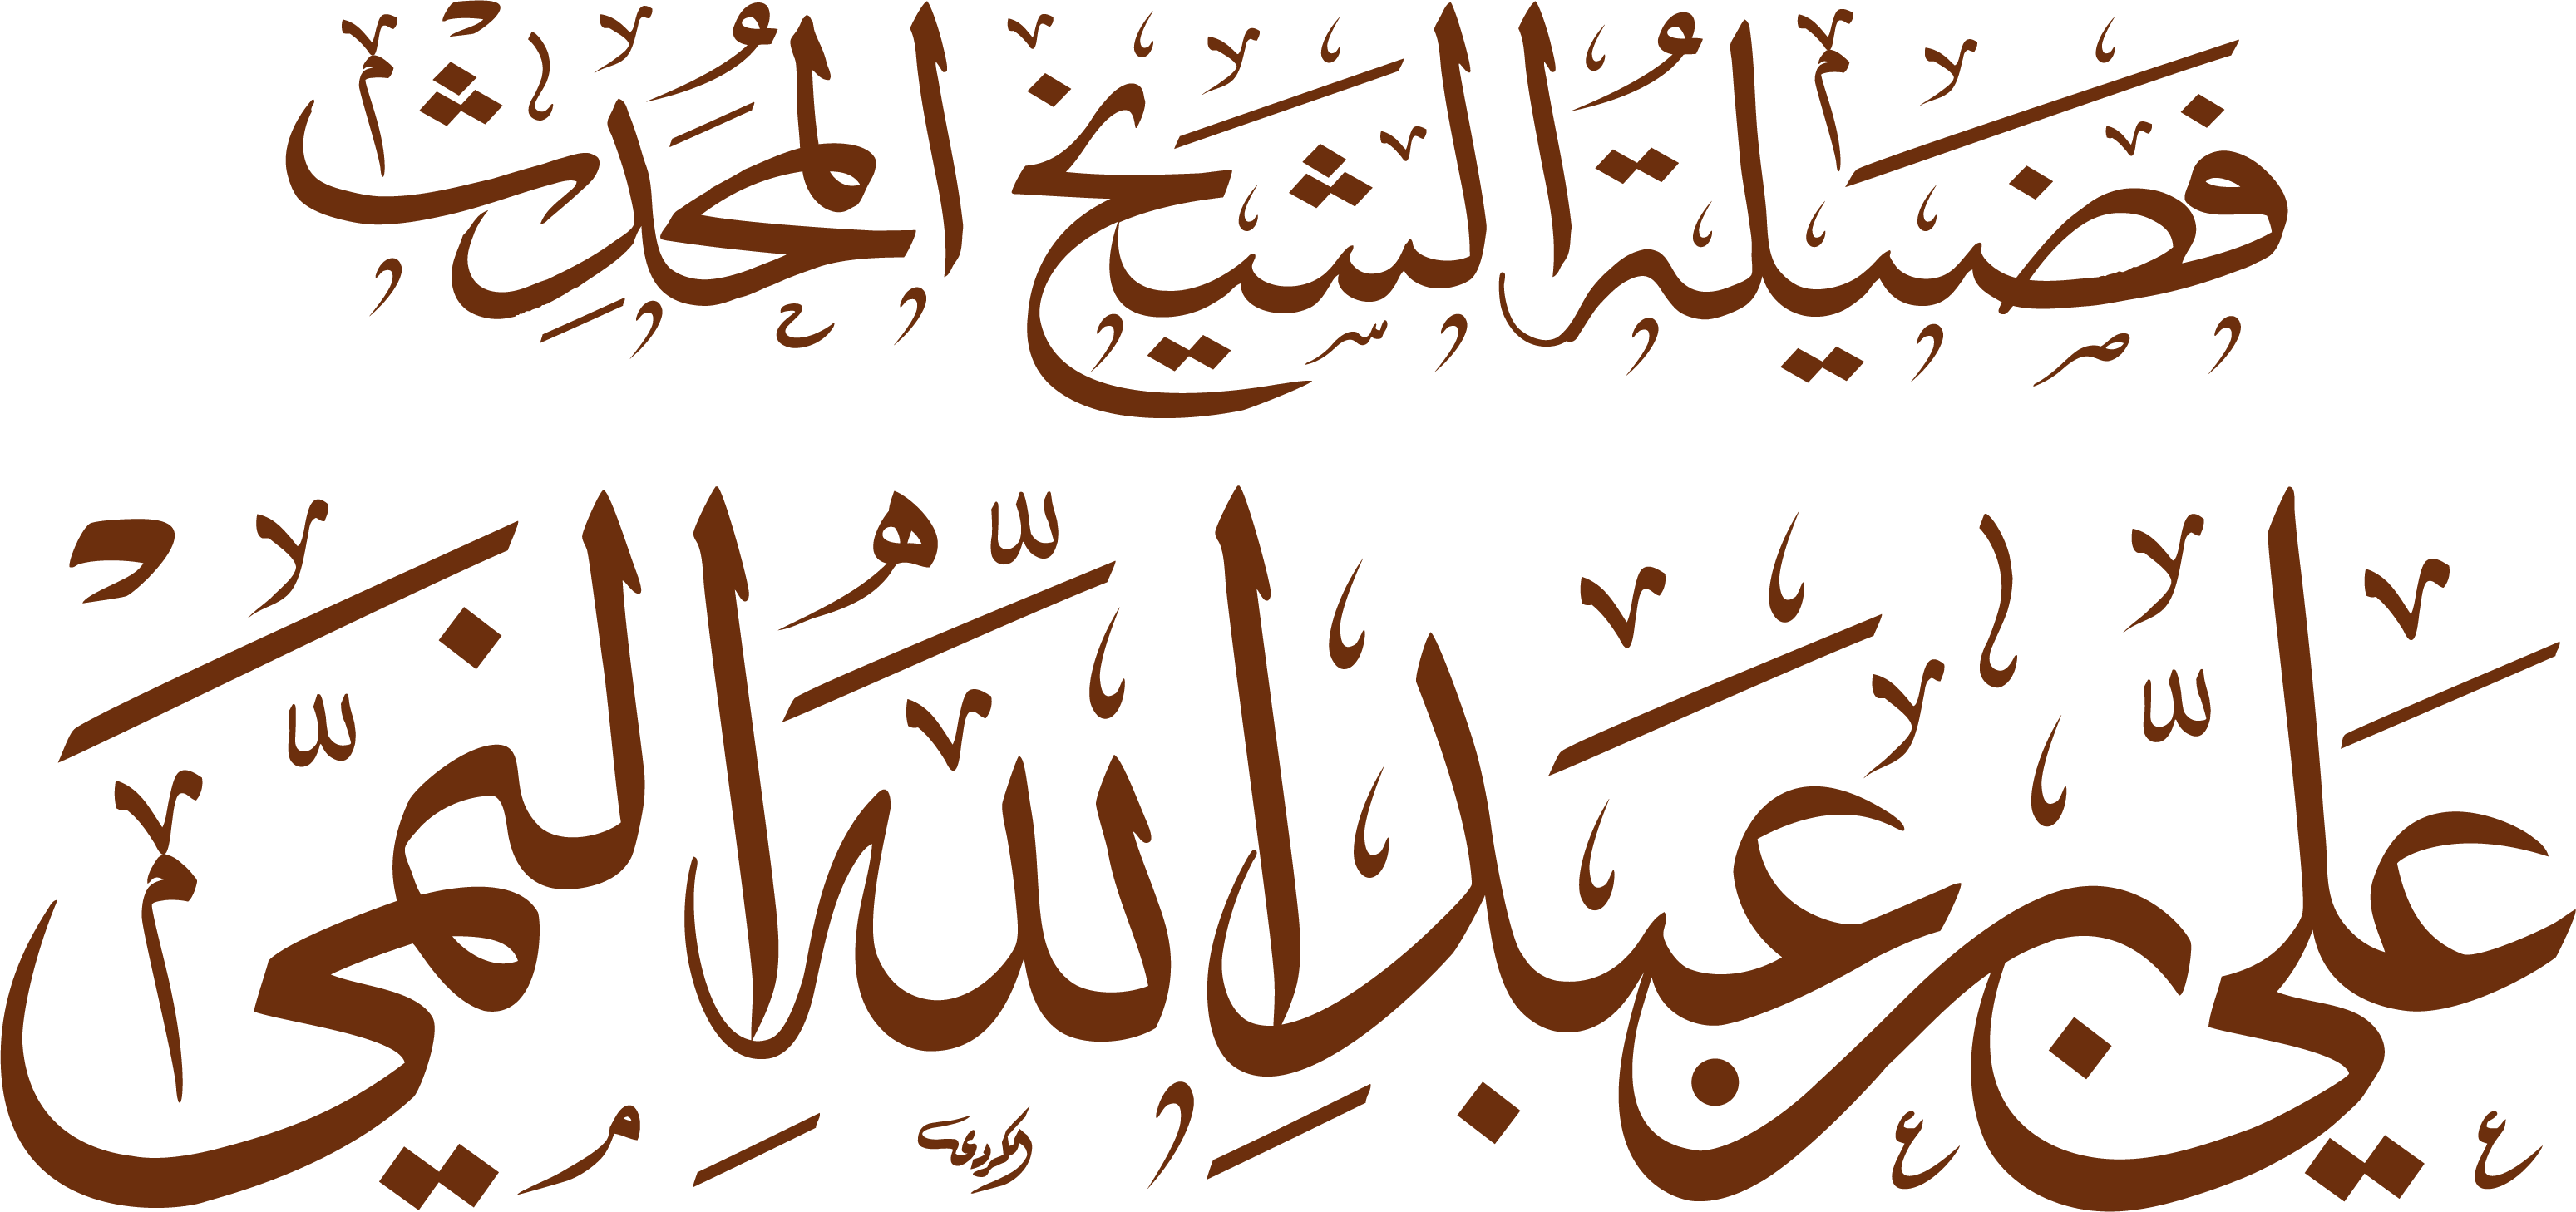 فضيلة الشيخ المحدث
علي بن عبد الله النمي